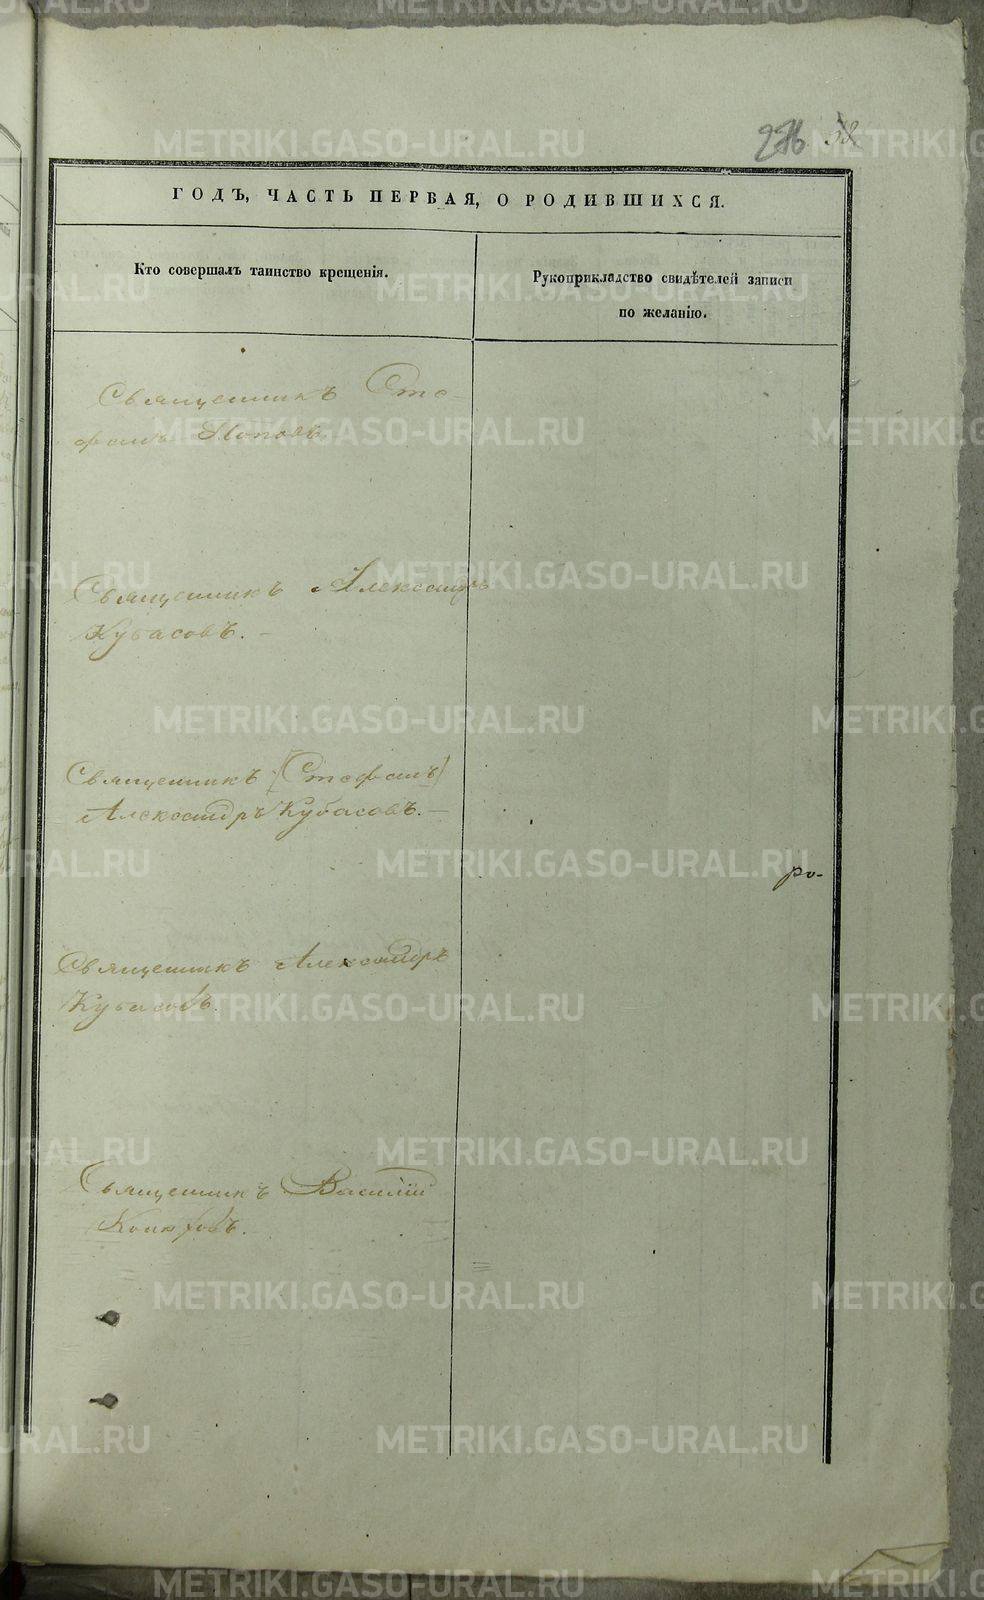 58.
ГОДЪ, ЧАСТЬ ПЕРВАЯ, О РОДИВШИХСЯ.
Кто совершалъ таинство крещенія.
Рукоприкладство свидѣтелей записи
по желанію.
Священникъ Сте-
фанъ Поповъ
Священникъ Александръ
Кубасовъ. –
Священникъ [Стефанъ]
Александръ Кубасовъ. –
ро-
Священникъ Александръ
Кубасовъ.
Священникъ Василій
METRIKI.GASO-URAL.RU